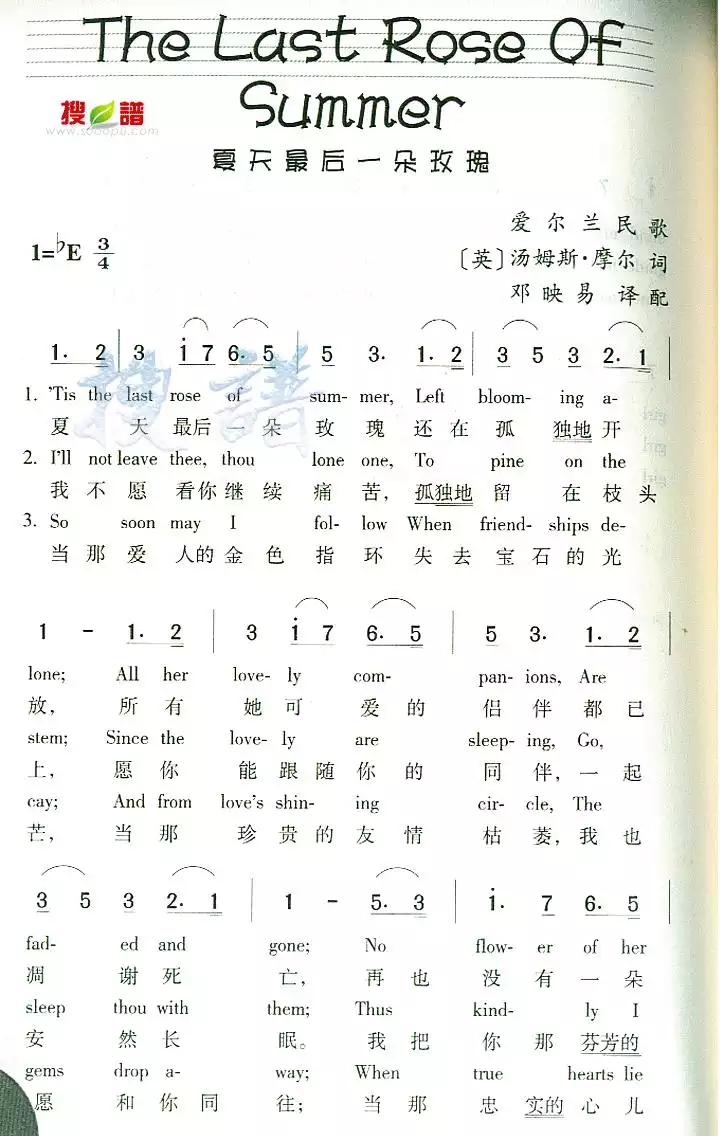 The Last Rose Of
Summer
搜 譜
www.sooopu.com
夏天最后一朵玫瑰
爱尔兰民歌
1=♭E 3/4
[英]汤姆斯·摩尔 词
邓映易 译配
1. 2 | 3 i 7 6. 5 | 5 3. 1. 2 | 3 5 3 2. 1
搜譜
1. 'Tis the last rose of sum- mer, Left bloom- ing a-
夏 天 最后 一 朵 玫 瑰 还 在 孤 独地 开
2. I'll not leave thee, thou lone one, To pine on the
我 不 愿 看你 继 续 痛 苦, 孤独地 留 在 枝 头
3. So soon may I fol- low When friend- ships de-
当 那 爱 人的 金 色 指 环 失 去 宝 石 的 光
1 - 1. 2 | 3 i 7 6. 5 | 5 3. 1. 2
lone; All her love- ly com- pan- ions, Are
放, 所 有 她 可 爱 的 侣 伴 都 已
stem; Since the love- ly are sleep- ing, Go,
上, 愿 你 能 跟 随 你 的 同 伴, 一 起
cay; And from love's shin- ing cir- cle, The
芒, 当 那 珍 贵 的 友 情 枯 萎, 我 也
3 5 3 2. 1 | 1 - 5. 3 | i. 7 6. 5
fad- ed and gone; No flow- er of her
凋 谢 死 亡, 再 也 没 有 一 朵
sleep thou with them; Thus kind- ly I
安 然 长 眠。 我 把 你 那 芬芳的
gems drop a- way; When true hearts lie
愿 和 你 同 往; 当 那 忠 实的 心 儿